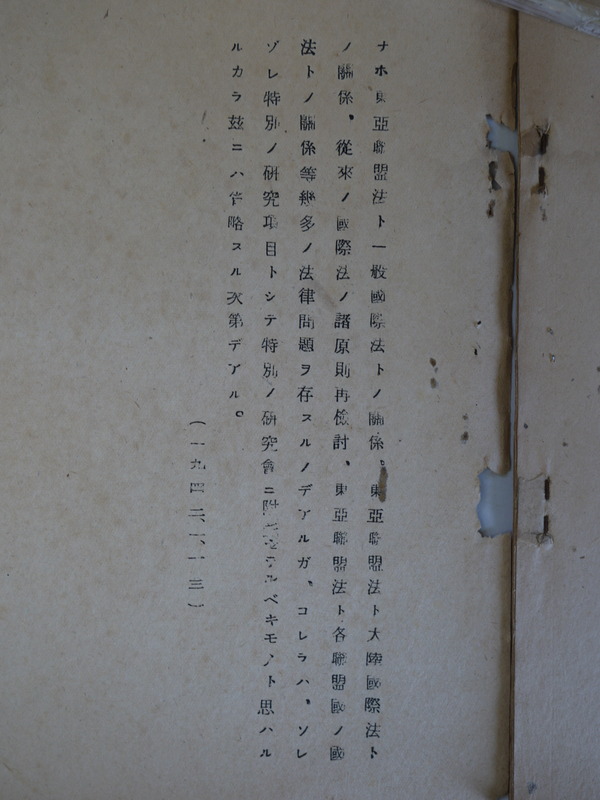 ナホ東亞聯盟法ト一般國際法トノ關係。東亞聯盟法ト大陸國際法ト
ノ關係、從來ノ國際法ノ諸原則再檢討、東亞聯盟法ト各聯盟國ノ國
法トノ關係等幾多ノ法律問題ヲ存スルノデアルガ、コレラハ、ソレ
ゾレ特別ノ研究項目トシテ特別ノ研究會ニ附ベキモノト思ハル
ルカラ茲ニハ省略スル次第デアル。
(一九四二、一三)